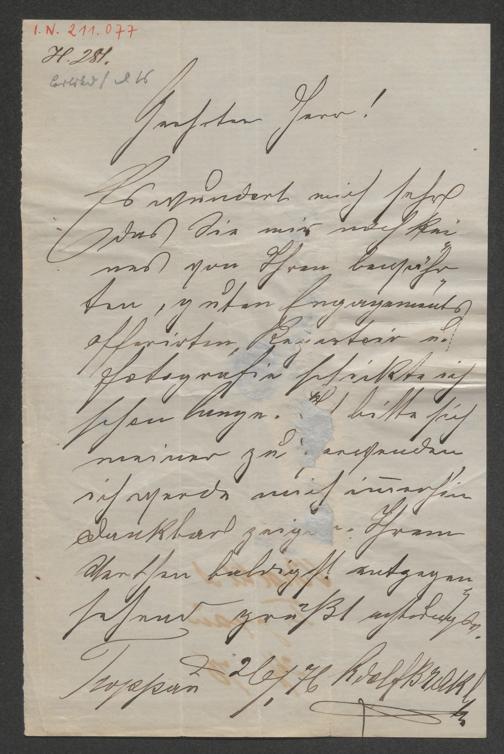 I. N. 211.077
H. 281.
Geehrter Herr!
Es wundert mich sehr
das Sie mir noch kei
nes von Ihren bewähr
ten, guten Engagements
offerirten, Repertoir u.
Fotografie schickte ich
schon lange. Ich bitte sich
meiner zu verwenden
ich werde mich immerhin
dankbar zeigen. Ihrem
Werthen baldigst entgegen
sehend grüßt achtungsv.
Troppau d 26/1 76 Adolf